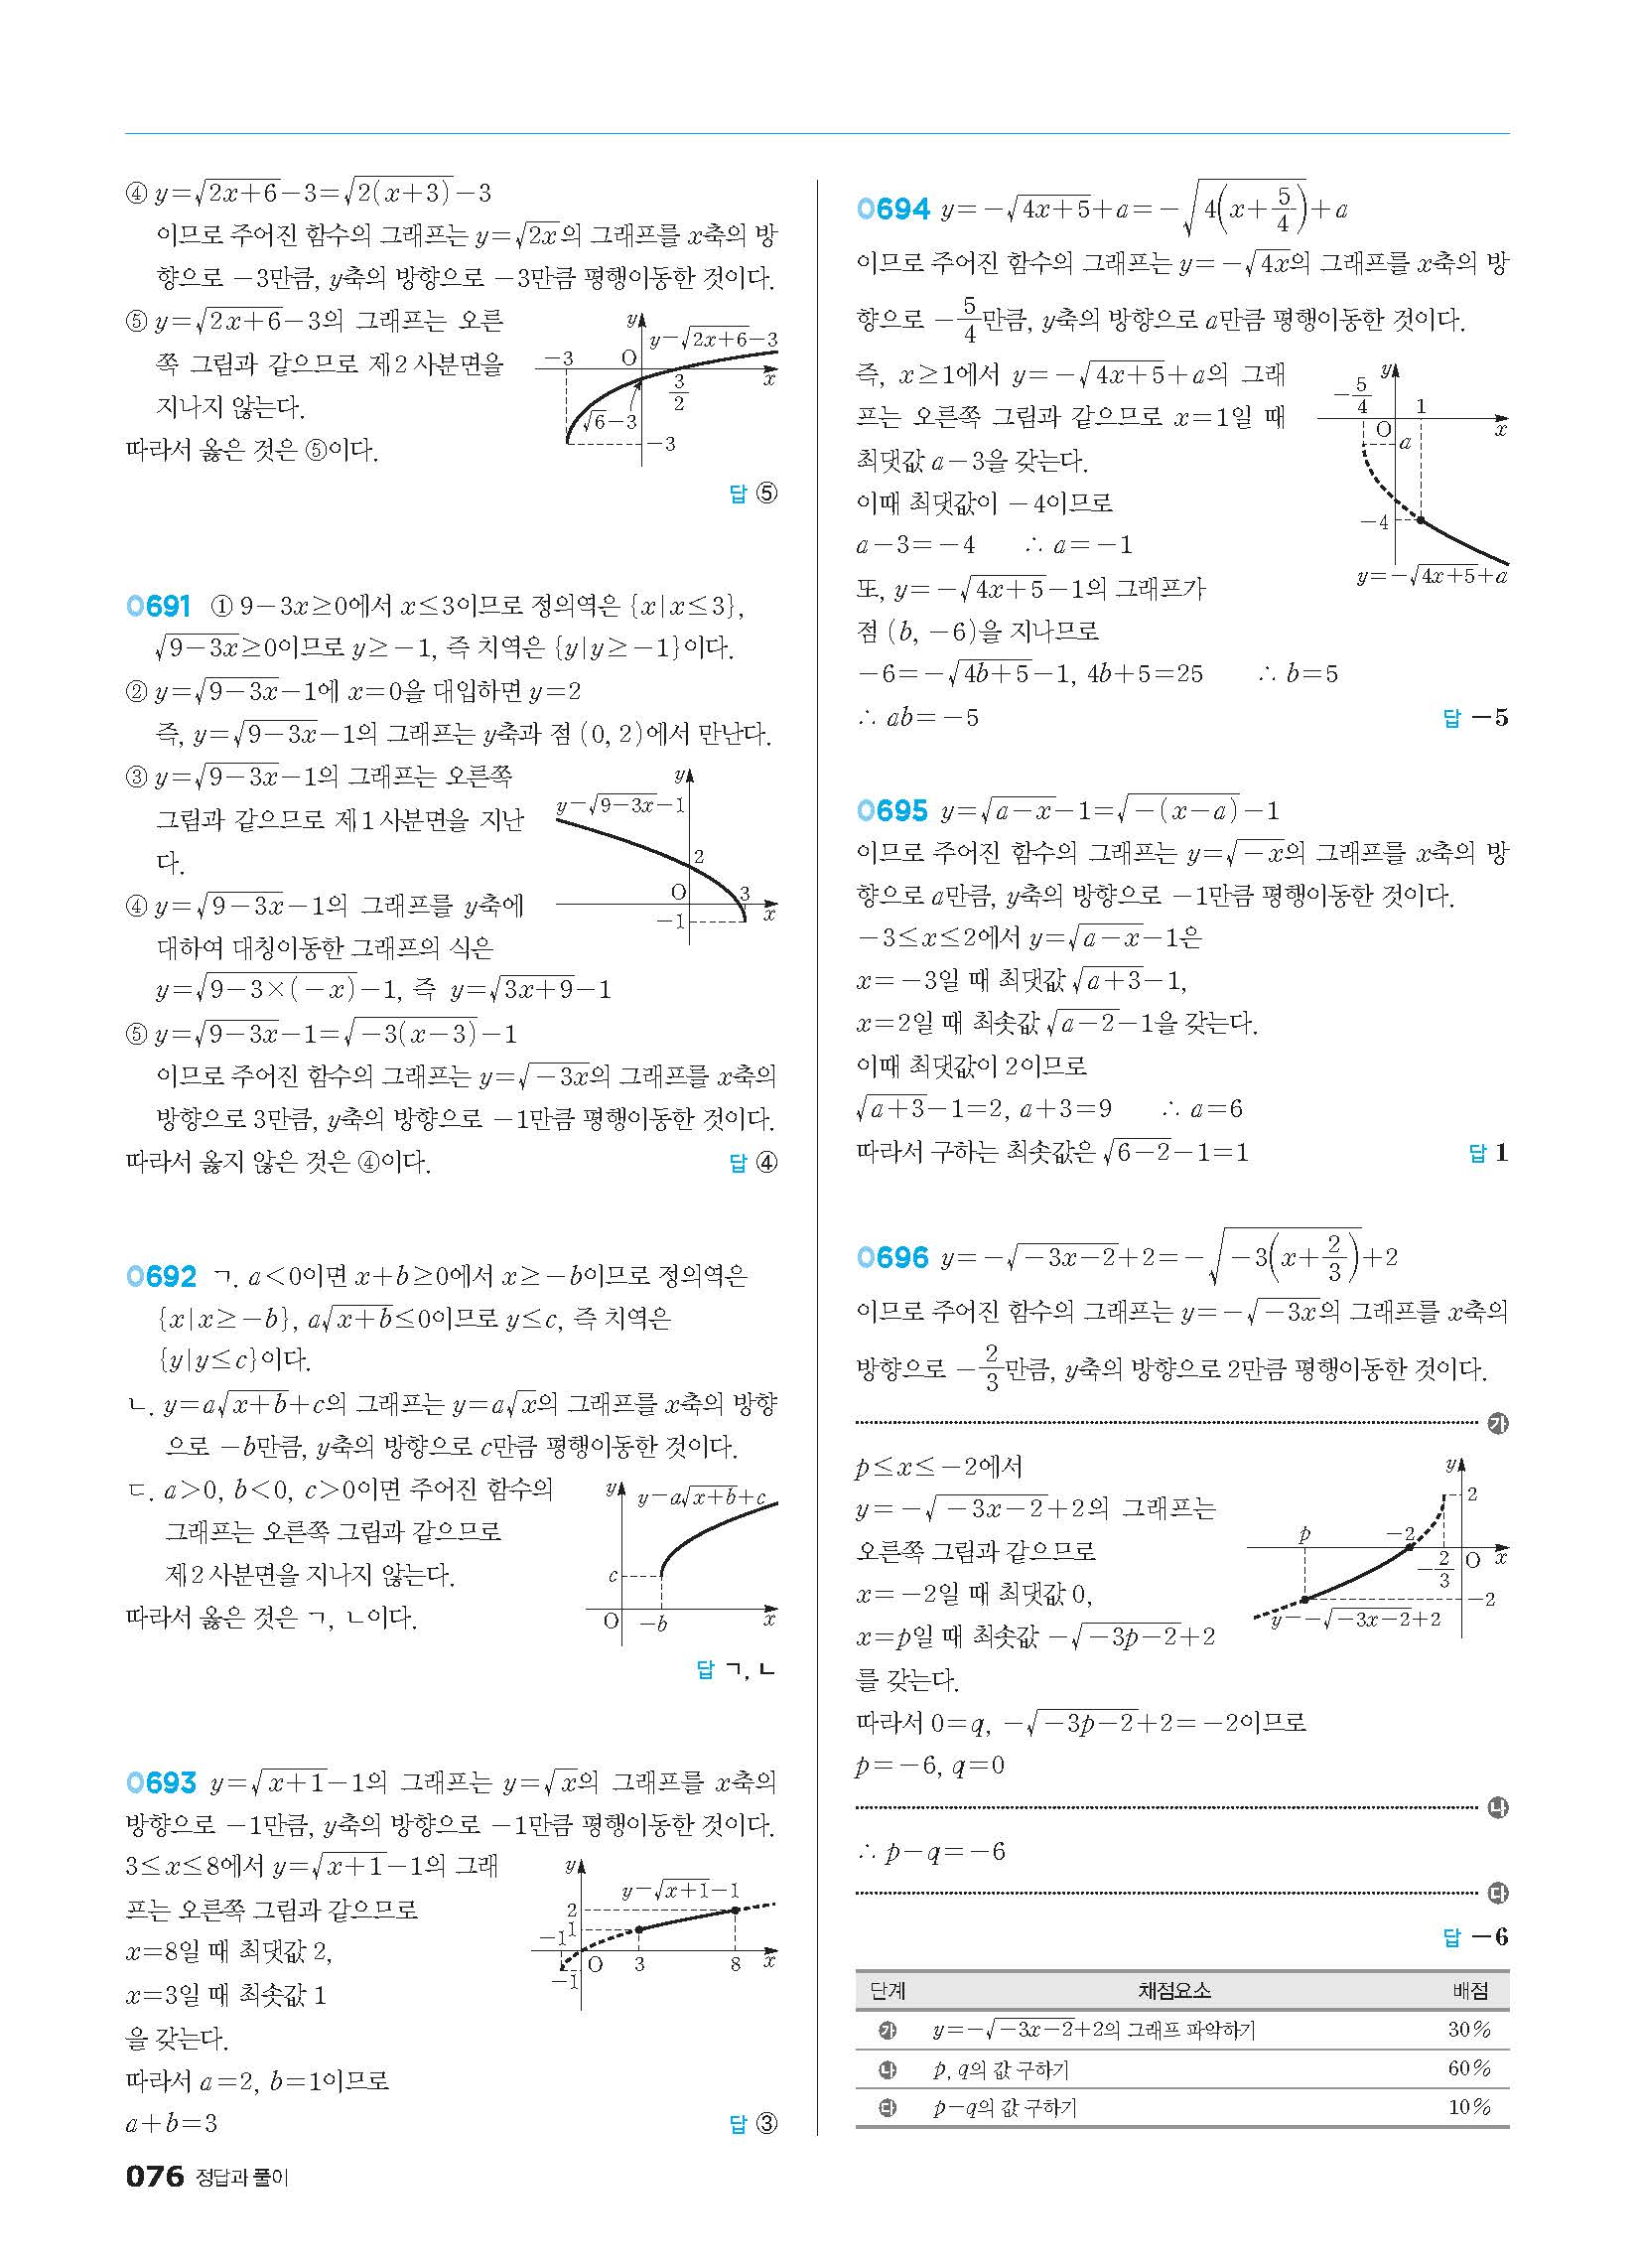 ④ y=√(2x+6)-3=√(2(x+3))-3
이므로 주어진 함수의 그래프는 y=√(2x)의 그래프를 x축의 방
향으로 -3만큼, y축의 방향으로 -3만큼 평행이동한 것이다.
⑤ y=√(2x+6)-3의 그래프는 오른
쪽 그림과 같으므로 제2사분면을
지나지 않는다.
따라서 옳은 것은 ⑤이다.
y
y=√(2x+6)-3
-3 O
3/2 x
√6-3
-3
답 ⑤
0691 ① 9-3x≥0에서 x≤3이므로 정의역은 {x|x≤3},
√(9-3x)≥0이므로 y≥-1, 즉 치역은 {y|y≥-1}이다.
② y=√(9-3x)-1에 x=0을 대입하면 y=2
즉, y=√(9-3x)-1의 그래프는 y축과 점 (0, 2)에서 만난다.
③ y=√(9-3x)-1의 그래프는 오른쪽
그림과 같으므로 제1사분면을 지난
다.
④ y=√(9-3x)-1의 그래프를 y축에
대하여 대칭이동한 그래프의 식은
y=√(9-3×(-x))-1, 즉 y=√(3x+9)-1
y
y=√(9-3x)-1
2
O 3
-1 x
⑤ y=√(9-3x)-1=√(-3(x-3))-1
이므로 주어진 함수의 그래프는 y=√(-3x)의 그래프를 x축의
방향으로 3만큼, y축의 방향으로 -1만큼 평행이동한 것이다.
따라서 옳지 않은 것은 ④이다. 답 ④
0692 ㄱ. a<0이면 x+b≥0에서 x≥-b이므로 정의역은
{x|x≥-b}, a√(x+b)≤0이므로 y≤c, 즉 치역은
{y|y≤c}이다.
ㄴ. y=a√(x+b)+c의 그래프는 y=a√x의 그래프를 x축의 방향
으로 -b만큼, y축의 방향으로 c만큼 평행이동한 것이다.
ㄷ. a>0, b<0, c>0이면 주어진 함수의
그래프는 오른쪽 그림과 같으므로
제2사분면을 지나지 않는다.
따라서 옳은 것은 ㄱ, ㄴ이다.
y y=a√(x+b)+c
c
O -b x
답 ㄱ, ㄴ
0693 y=√(x+1)-1의 그래프는 y=√x의 그래프를 x축의
방향으로 -1만큼, y축의 방향으로 -1만큼 평행이동한 것이다.
3≤x≤8에서 y=√(x+1)-1의 그래
프는 오른쪽 그림과 같으므로
x=8일 때 최댓값 2,
x=3일 때 최솟값 1
을 갖는다.
따라서 a=2, b=1이므로
a+b=3 답 ③
y
y=√(x+1)-1
2
1
-1
O 3 8 x
-1
0694 y=-√(4x+5)+a=-√(4(x+5/4))+a
이므로 주어진 함수의 그래프는 y=-√(4x)의 그래프를 x축의 방
향으로 -5/4만큼, y축의 방향으로 a만큼 평행이동한 것이다.
즉, x≥1에서 y=-√(4x+5)+a의 그래
프는 오른쪽 그림과 같으므로 x=1일 때
최댓값 a-3을 갖는다.
이때 최댓값이 -4이므로
a-3=-4 ∴ a=-1
또, y=-√(4x+5)-1의 그래프가
점 (b, -6)을 지나므로
-6=-√(4b+5)-1, 4b+5=25 ∴ b=5
∴ ab=-5 답 -5
y
-5/4 1
O x
a
-4
y=-√(4x+5)+a
0695 y=√(a-x)-1=√(-(x-a))-1
이므로 주어진 함수의 그래프는 y=√(-x)의 그래프를 x축의 방
향으로 a만큼, y축의 방향으로 -1만큼 평행이동한 것이다.
-3≤x≤2에서 y=√(a-x)-1은
x=-3일 때 최댓값 √(a+3)-1,
x=2일 때 최솟값 √(a-2)-1을 갖는다.
이때 최댓값이 2이므로
√(a+3)-1=2, a+3=9 ∴ a=6
따라서 구하는 최솟값은 √(6-2)-1=1 답 1
0696 y=-√(-3x-2)+2=-√(-3(x+2/3))+2
이므로 주어진 함수의 그래프는 y=-√(-3x)의 그래프를 x축의
방향으로 -2/3만큼, y축의 방향으로 2만큼 평행이동한 것이다.
㉮
p≤x≤-2에서
y=-√(-3x-2)+2의 그래프는
오른쪽 그림과 같으므로
x=-2일 때 최댓값 0,
x=p일 때 최솟값 -√(-3p-2)+2
를 갖는다.
y
2
p -2
-2/3 O x
-2
y=-√(-3x-2)+2
따라서 0=q, -√(-3p-2)+2=-2이므로
p=-6, q=0
㉯
∴ p-q=-6
㉰
답 -6
단계 채점요소 배점
㉮ y=-√(-3x-2)+2의 그래프 파악하기 30%
㉯ p, q의 값 구하기 60%
㉰ p-q의 값 구하기 10%
076 정답과 풀이